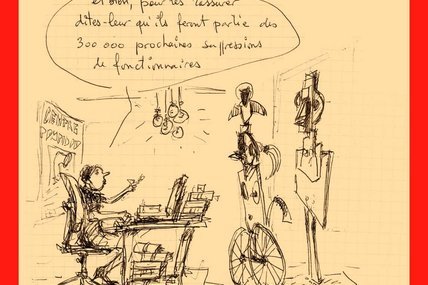 et bien, pour les rassurer
dites-leur qu'ils feront partie des
300 000 prochaines suppressions
de fonctionnaires
CENTRE
POMPIDOU